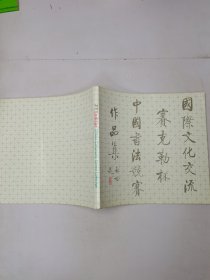 國際文化交流
賽克勒杯
中國書法競賽
作品集